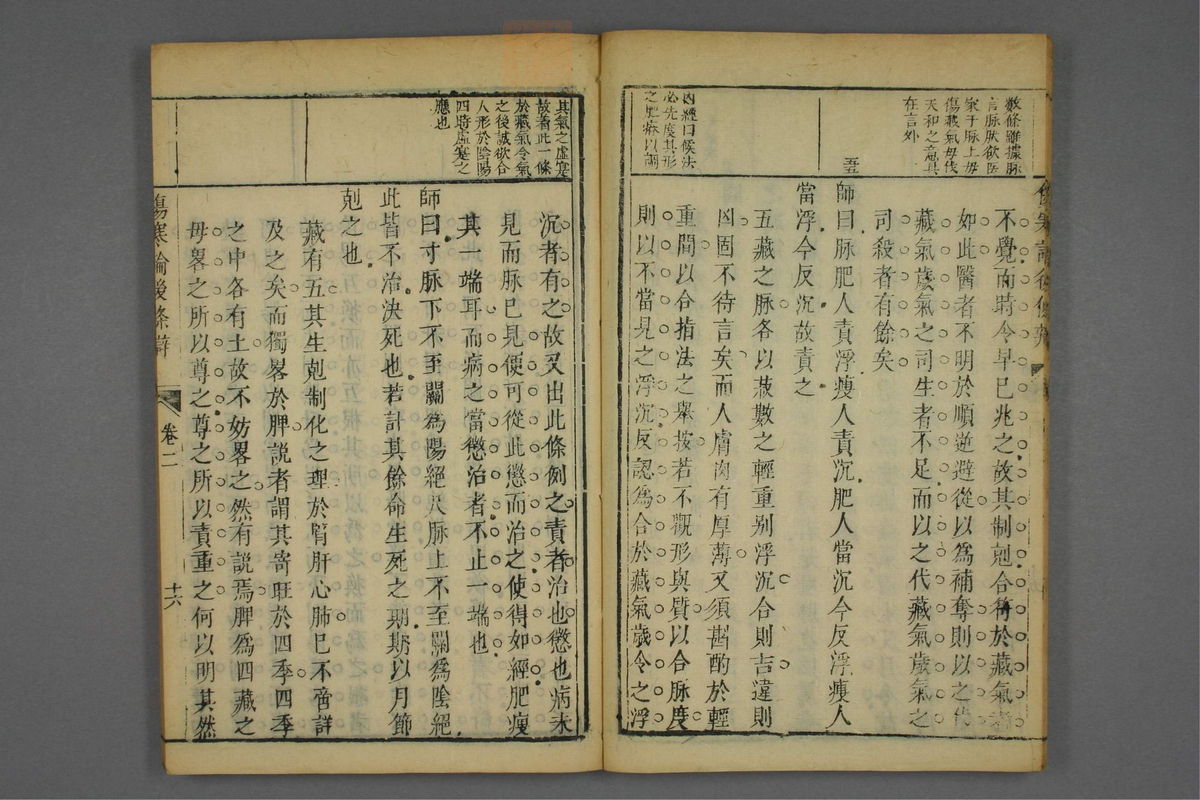 數條雖據脉
言脉厥欲医
家于脉上毋
傷藏氣毋伐
天和之意具
在言外
五
內經曰候法
必先度其形
之肥瘠以調
不覺而時令早已兆之故其制剋合符於藏氣者
如此醫者不明於順逆避從以為補奪則以之代
藏氣歲氣之司生者不足而以之代藏氣歲氣之
司殺者有餘矣
師曰脉肥人責浮瘦人責沉肥人當沉今反浮瘦人
當浮今反沉故責之
五藏之脉各以菽數之輕重别浮沉合則吉違則
凶固不待言矣而人膚肉有厚薄又須斟酌於輕
重間以合指法之舉按若不觀形與質以合脉度
則以不當見之浮沉反認爲合於藏氣歲令之浮
其氣之虛寔
故着此一條
於藏氣令氣
之後誠欲合
人形於陰陽
四時虛寔之
應也
沉者有之故又出此條例之責者治也懲也病未
見而脉已見便可從此懲而治之使得如經肥瘦
其一端耳而病之當懲治者不止一端也
師曰寸脉下不至關爲陽絕尺脉上不至關爲陰絕
此皆不治決死也若計其餘命生死之期期以月節
剋之也
藏有五其生剋制化之理於腎肝心肺已不啻詳
及之矣而獨畧於脾説者謂其寄旺於四季四季
之中各有土故不妨畧之然有説焉脾爲四藏之
毋畧之所以尊之尊之所以責重之何以明其然
傷寒論後條辯
卷二
十六